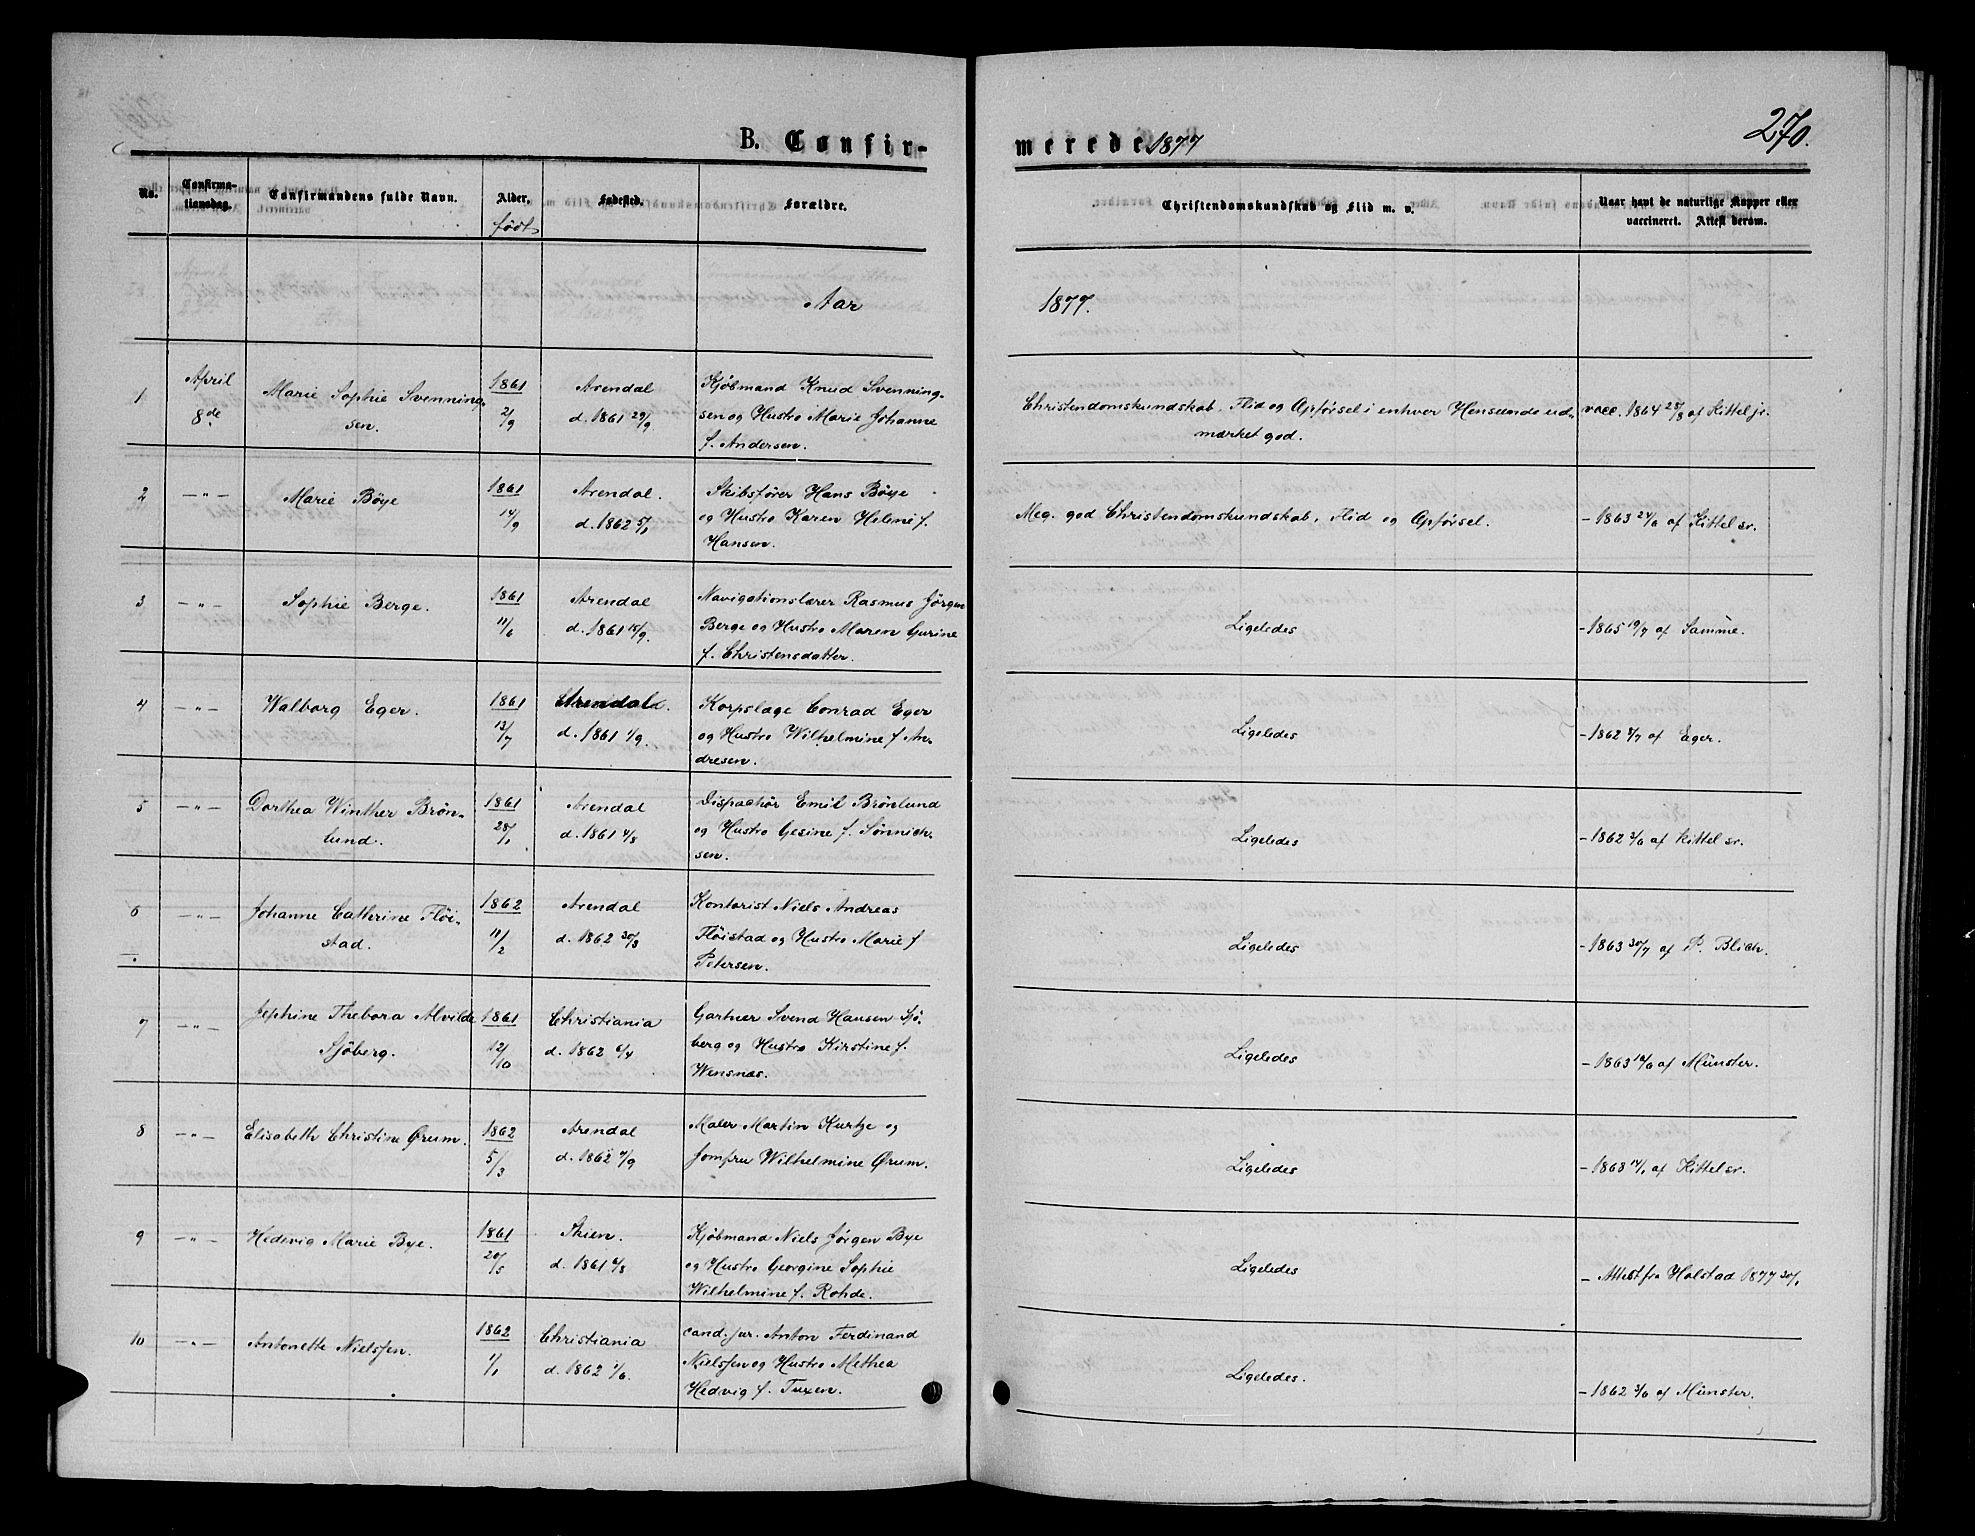 B. Confir-
merede 1877
270.
No.
Confirma-
tionsdag.
Confirmandens fulde Navn.
Alder.
født
Fødested.
Forældre.
Christendomskundskab og Flid m. v.
Naar havt de naturlige Kopper eller
vaccineret. Attest derom.
Aar
1877.
1
April
8de
Marie Sophie Svenning-
sen.
1861
2/9
Arendal
d. 1861 29/9.
Kjøbmand Knud Svenning-
sen og Hustro Marie Johanne
f. Andersen.
Christendomskundskab, Flid og Opførsel i enhver Henseende ud-
mærket god.
vacc. 1864 25/8 af Kittel jr.
2
— " —
Marie Böye
1861
14/9
Arendal.
d. 1862 5/1
Skibsfører Hans Böye
og Hustro Karen Helene f.
Hansen.
Meg. god Christendomskundskab, Flid og Opførsel.
- 1863 24/6 af Kittel sr.
3
— " —
Sophie Berge.
1861
11/6
Arendal
d. 1861 15/9.
Navigationslærer Rasmus Jörgen
Berge og Hustro Maren Gurine
f. Christensdatter.
Ligeledes
- 1865 19/7 af Samme.
4
— " —
Walborg Eger.
1861
13/7
Arendal.
d. 1861 1/9.
Korpslæge Conrad Eger
og Hustro Wilhelmine f. An-
dresen.
Ligeledes
- 1862 8/7 af Eger.
5
— " —
Dorthea Winther Brön-
lund.
1861
28/1
Arendal
d. 1861 4/8
Dispachör Emil Brönlund
og Hustro Gesine f. Sönnich-
sen.
Ligeledes
- 1862 3/6 af Kittel sr.
6
— " —
Johanne Cathrine Flöi-
stad.
1862
11/2
Arendal
d. 1862 30/3
Kontorist Niels Andreas
Flöistad og Hustro Marie f
Petersen.
Ligeledes
- 1863 30/7 af P. Blich.
7
— " —
Jephine Thebora Alvilde
Sjöberg.
1861
12/10
Christiania
d. 1862 6/4
Gartner Svend Hansen Sjö-
berg og Hustro Kirstine f.
Wensnæs.
Ligeledes
- 1863 10/6 af Münster.
8
— " —
Elisabeth Christine Ørum.
1862
5/3
Arendal
d. 1862 7/9
Maler Martin Kurtze og
Jomfru Wilhelmine Ørum.
Ligeledes
- 1868 14/1 af Kittel sr.
9
— " —
Hedevig Marie Bye.
1861
20/5
Skien.
d. 1861 4/8
Kjöbmand Niels Jörgen Bye
og Hustro Georgine Sophie
Wilhelmine f. Rohde.
Ligeledes
- Attest fra Holstad 1877 30/1
10
— " —
Antonette Nielssen.
1862
1/1
Christiania
d. 1862 1/6.
cand. jur. Anton Ferdinand
Nielssen og Hustro Methea
Hedvig f. Tuxen.
Ligeledes.
- 1862 3/6 af Münster.